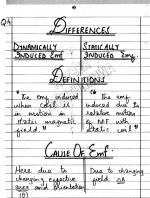 Q4
DIFFERENCES
DYNAMICALLY INDUCED Emf.
STATICALLY INDUCED Emf.
DEFINITIONS
"The emf induced when coil is in motion in static magnetic field."
"The emf induced due to relative motion of MF with static coil"
CAUSE OF Emf:
Here due to changing effective area and orientation (θ)
Due to changing field